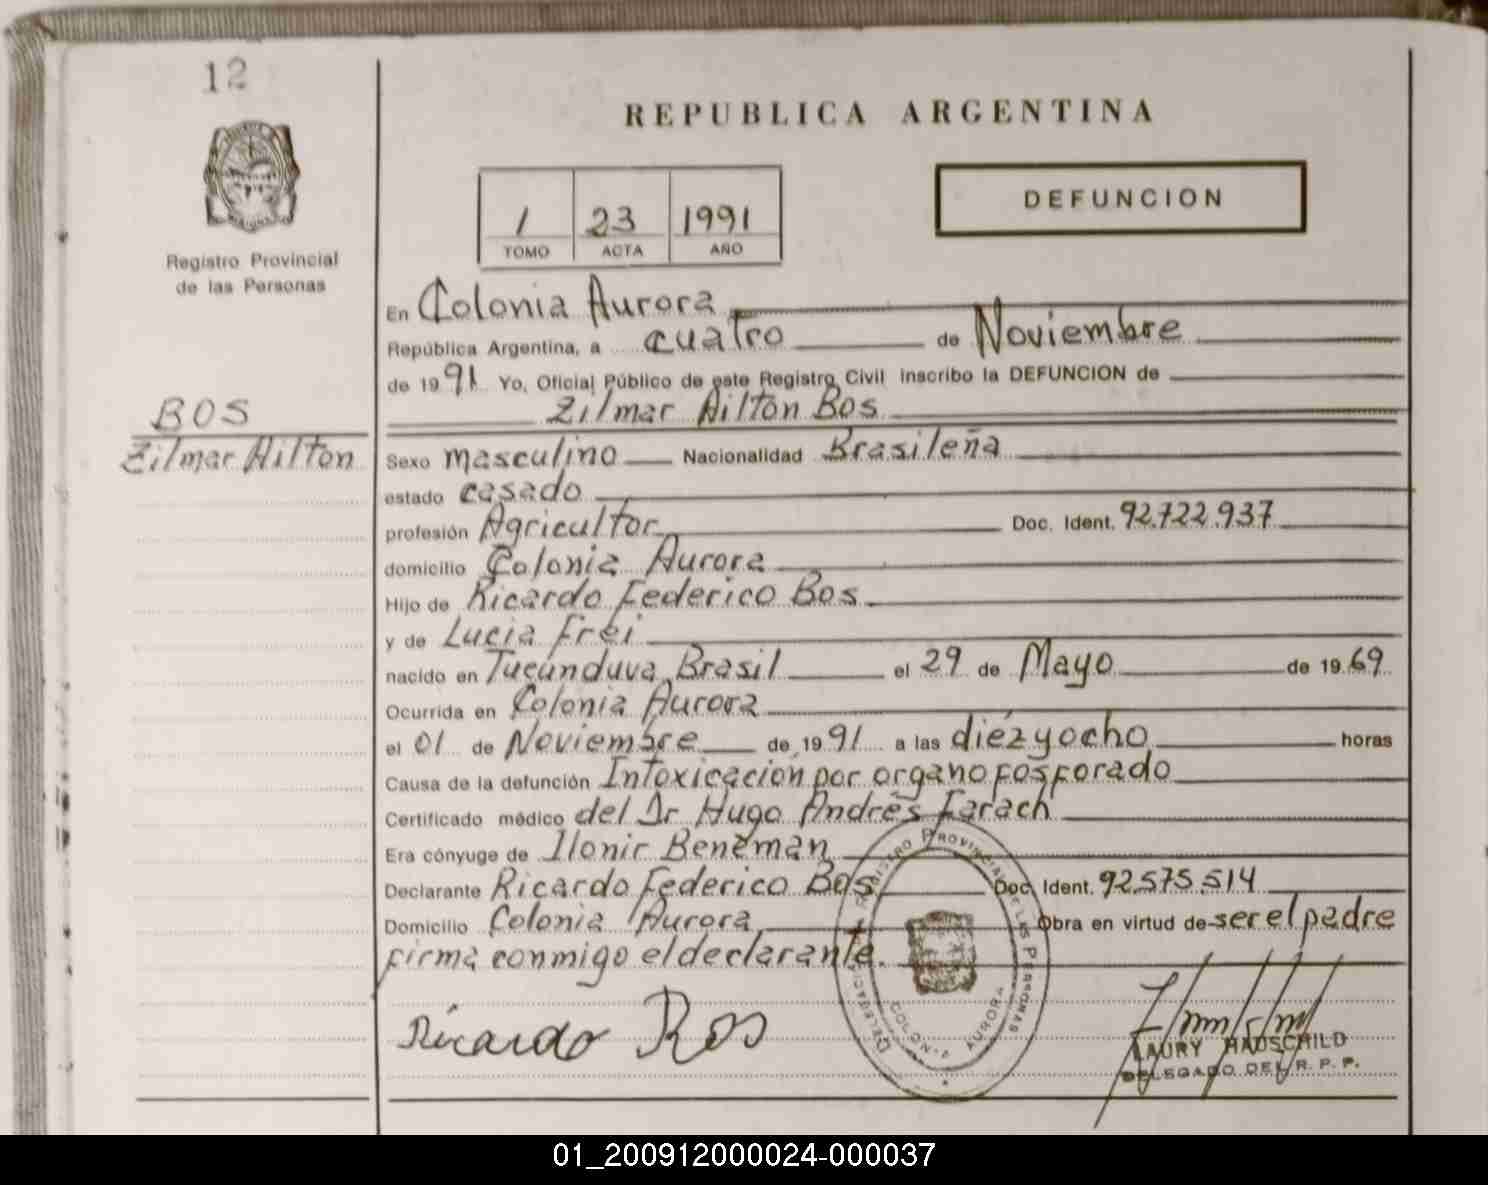 12
REPUBLICA ARGENTINA
DEFUNCION
1 23 1991
TOMO ACTA AÑO
Registro Provincial
de las Personas
En Colonia Aurora
República Argentina, a cuatro de Noviembre
de 1991 Yo, Oficial Público de este Registro Civil inscribo la DEFUNCION de
Zilmar Ailton Bos
BOS
Zilmar Ailton
Sexo masculino Nacionalidad Brasileña
estado casado
profesión Agricultor Doc. Ident. 92.722.937
domicilio Colonia Aurora
Hijo de Ricardo Federico Bos
y de Lucia Frei
nacido en Tucunduva, Brasil el 29 de Mayo de 1969
Ocurrida en Colonia Aurora
el 01 de Noviembre de 1991 a las diez y ocho horas
Causa de la defunción Intoxicación por organofosforado
Certificado médico del Dr Hugo Andrés Farach
Era cónyuge de Ilonir Beneman
Declarante Ricardo Federico Bos Doc. Ident. 92.575.514
Domicilio Colonia Aurora Obra en virtud de ser el padre
firma conmigo el declarante.
Ricardo Bos
REGISTRO PROVINCIAL DE LAS PERSONAS
DELEGACION
COLONIA AURORA
LAURY HAUSCHILD
DELEGADO DEL R. P. P.
01_200912000024-000037